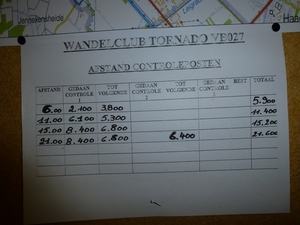 Jennekensheide
Haa
WANDELCLUB TORNADO VB027
AFSTAND CONTROLEPOSTEN
AFSTAND GEDAAN CONTROLE 1 TOT VOLGENDE GEDAAN CONTROLE 2 TOT VOLGENDE GEDAAN CONTROLE 3 REST TOTAAL
6.00 2.100 3.800 5.900
11.00 6.100 5.300 11.400
15.00 8.400 6.800 15.200
21.00 8.400 6.800 6.400 21.600